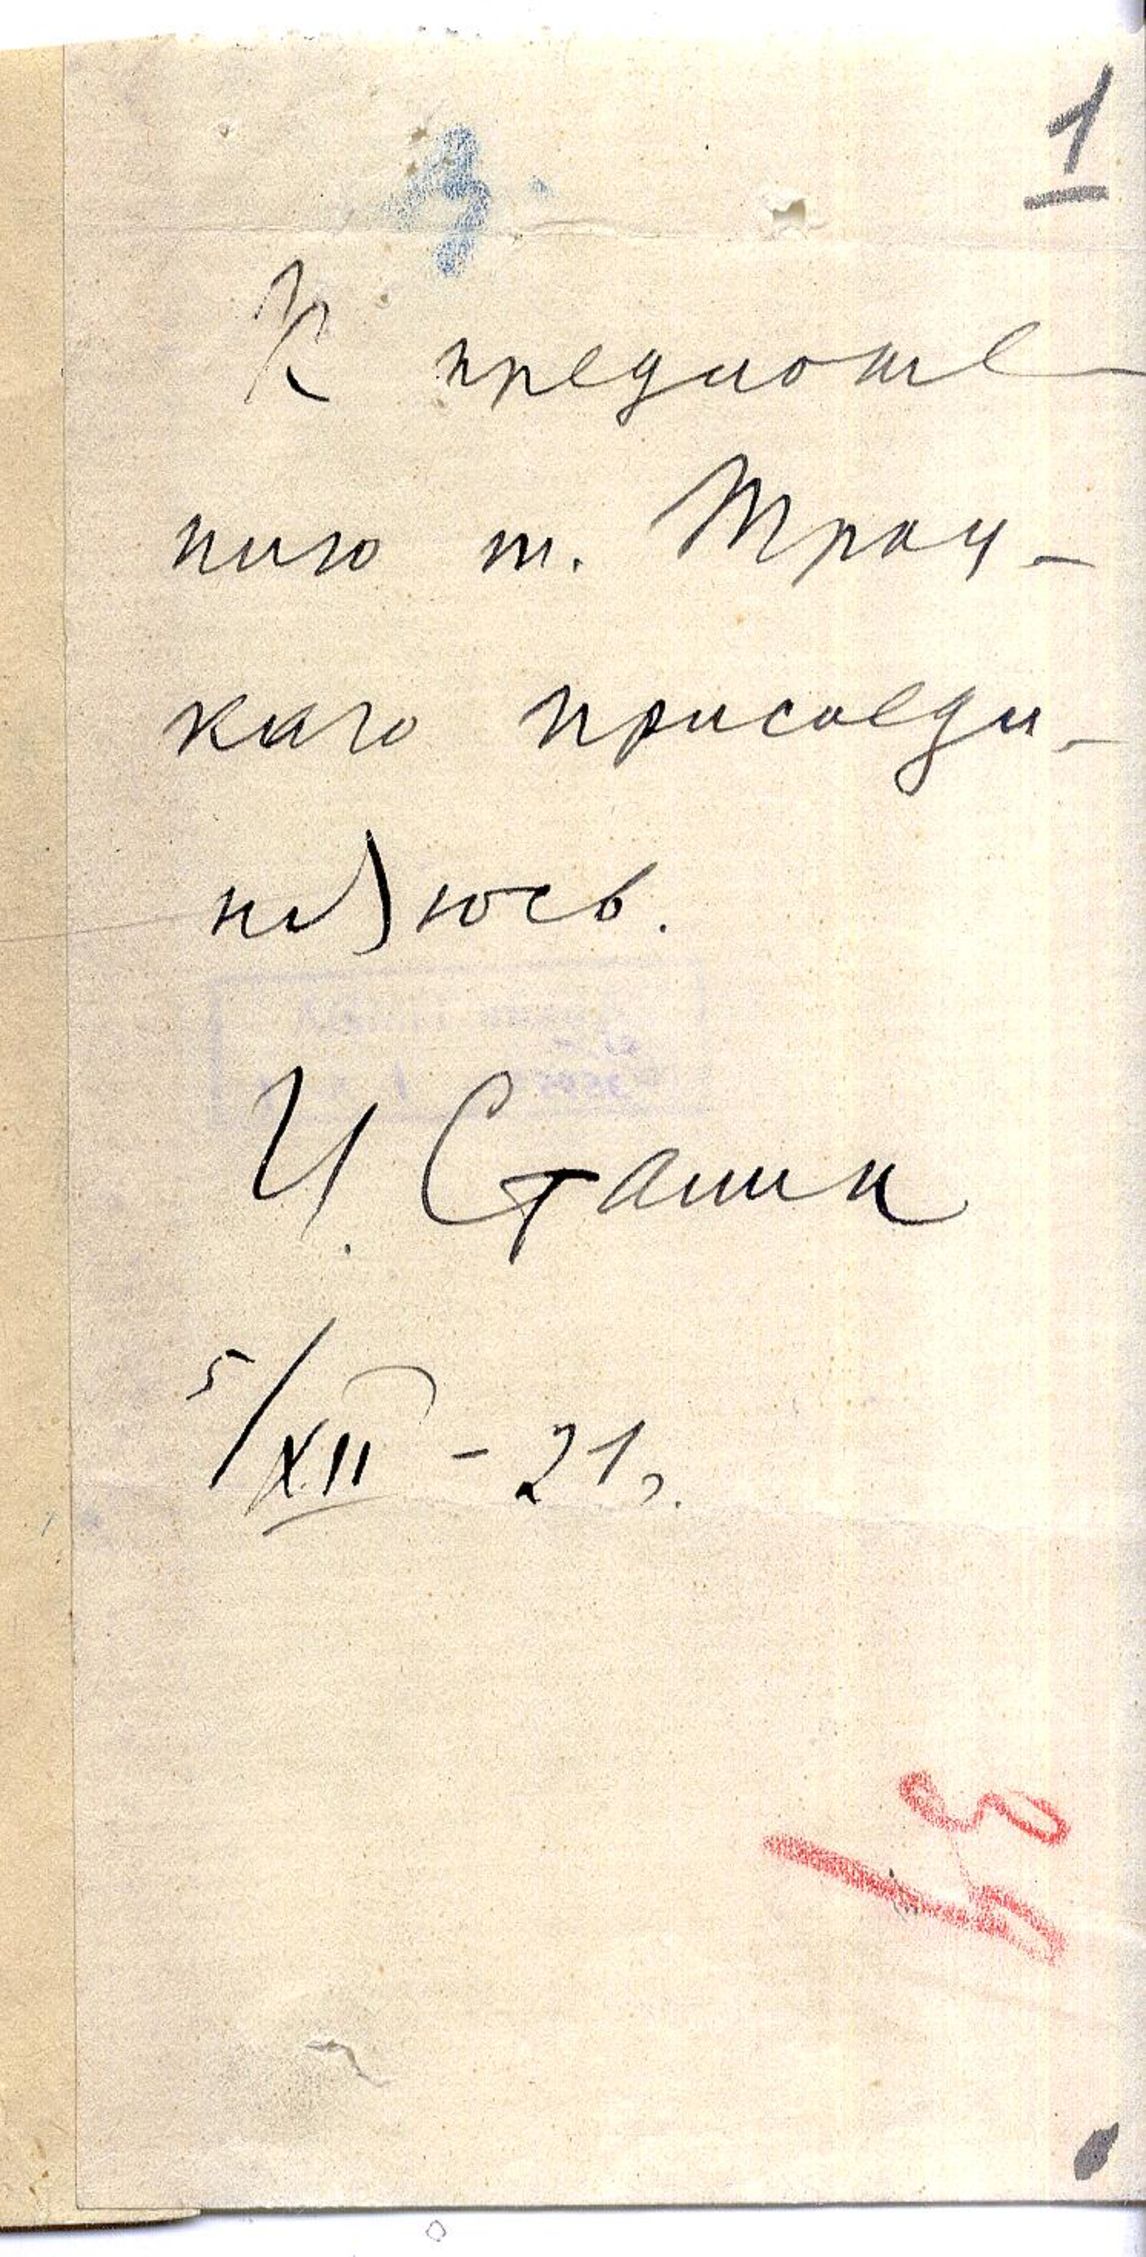 1
3
К предложе
нию т. Троц-
каго присоеди-
няюсь.
И. Сталин
5/XII - 21 г.